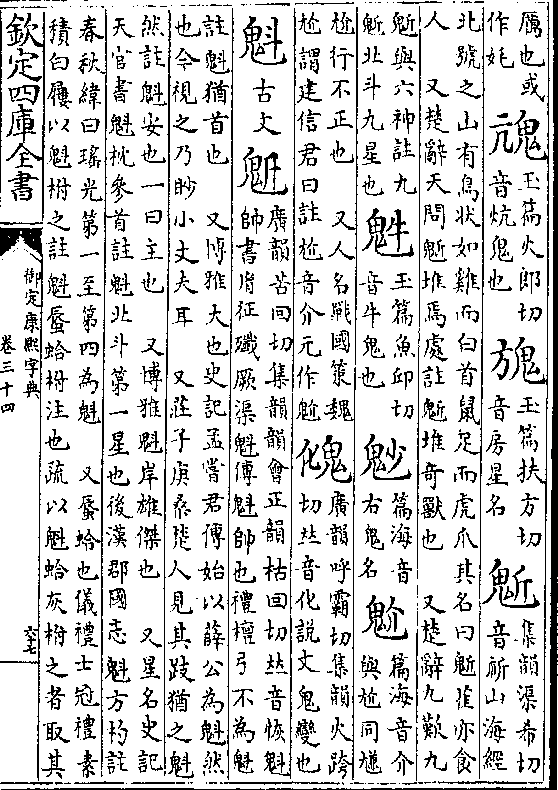 厲也或作㚲 玉篇火郎切音炕鬼也 玉篇扶方切音房星名 鬿 集韻渠希切音祈山海經
北號之山有鳥狀如雞而白首鼠足而虎爪其名曰鬿雀亦食
人 又楚辭天問鬿堆焉處註鬿堆奇獸也 又楚辭九歎九
鬿與六神註九鬿北斗九星也 玉篇魚邱切音牛鬼也 篇海音右鬼名 魀 篇海音介與尬同尷
尬行不正也 又人名戰國策魏尬謂建信君曰註尬音介元作魀 廣韻呼霸切集韻火跨切𠀤音化說文鬼變也
魁 古文 魁 廣韻苦回切集韻韻會正韻枯回切𠀤音恢魁
帥書𦙍征殲厥渠魁傳魁帥也禮檀弓不為魁
註魁猶首也 又博雅大也史記孟嘗君傳始以薛公為魁然
也今視之乃眇小丈夫耳 又莊子庚桑楚人見其跂猶之魁
然註魁安也一曰主也 又博雅魁岸雄傑也 又星名史記
天官書魁枕參首註魁北斗第一星也後漢郡國志魁方杓註
春秋緯曰瑤光第一至第四為魁 又蜃蛤也儀禮士冠禮素
積白屨以魁柎之註魁蜃蛤柎注也疏以魁蛤灰柎之者取其
欽定四庫全書
御定康熙字典
卷三十四
六十七